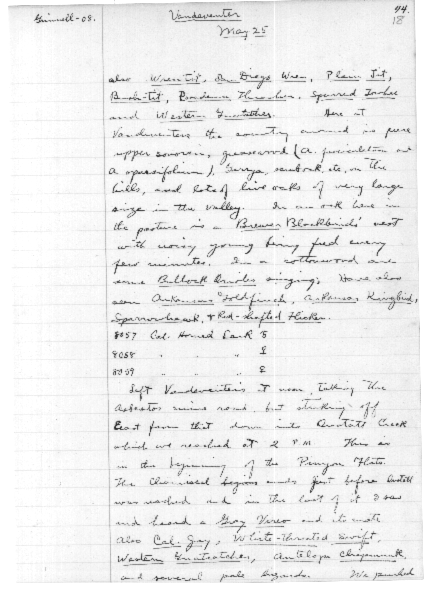 Grinnell-08.
Vandeventer
May 25
44.
18
also Wren-tit, San Diego Wren, Plain Tit,
Bush-tit, Pasadena Thrasher, Spurred Towhee
and Western Gnatcatcher. Here at
Vandeventer's the country around is pure
upper sonoran, greasewood (A. fasciculatum and
A. sparsifolium), Garrya, scrub oak, etc, on the
hills, and lots of live oaks of very large
size in the valley. In an oak here in
the pasture is a Brewer Blackbirds' nest
with noisy young being fed every
few minutes. In a cottonwood are
some Bullock Orioles singing; Have also
seen Arkansas Goldfinch, Arkansas Kingbird,
Sparrowhawk, & Red-shafted Flicker.
8057 Cal. Horned Lark
8058 " " " ♀
8059 " " " ♀
Left Vandeventer's at noon, taking the
asbestos mine road, but striking off
East from that down into Creek
which we reached at 2 P.M. This is
in the beginning of the Pinyon Flats.
The Chamisal begins ends just before
was reached and in the last of it I saw
and heard a Gray Vireo and its mate
Also Cal. Jay, White-throated Swift,
Western Gnatcatcher, Antelope Chipmunk,
and several pale lizards. We pushed